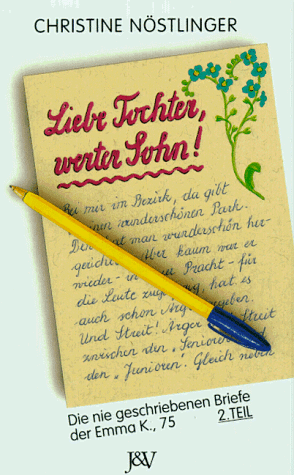 CHRISTINE NÖSTLINGER
Liebe Tochter,
werter Sohn!
Bei mir im Bezirk, da gibt
einen wunderschönen Park.
Den hat man wunderschön her-
gerichtet. Aber kaum war er
wieder - in Pracht - für
die Leute hat es
auch schon Ärger gegeben.
Und Streit! Ärger Streit
zwischen den „Senioren"
den „Junioren". Gleich neben
Die nie geschriebenen Briefe
der Emma K., 75 2.TEIL
J&V